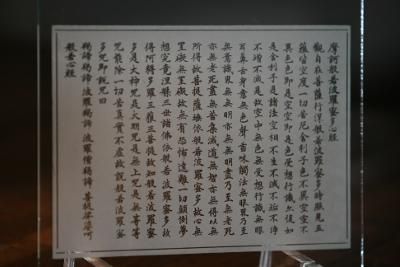 摩訶般若波羅蜜多心經
觀自在菩薩行深般若波羅蜜多時照見五
蘊皆空度一切苦厄舍利子色不異空空不
異色色即是空空即是色受想行識亦復如
是舍利子是諸法空相不生不滅不垢不淨
不增不減是故空中無色無受想行識無眼
耳鼻舌身意無色聲香味觸法無眼界乃至
無意識界無無明亦無無明盡乃至無老死
亦無老死盡無苦集滅道無智亦無得以無
所得故菩提薩埵依般若波羅蜜多故心無
罣礙無罣礙故無有恐怖遠離一切顛倒夢
想究竟涅槃三世諸佛依般若波羅蜜多故
得阿耨多羅三藐三菩提故知般若波羅蜜
多是大神咒是大明咒是無上咒是無等等
咒能除一切苦真實不虛故說般若波羅蜜
多咒即說咒曰
揭諦揭諦 波羅揭諦 波羅僧揭諦 菩提娑婆訶
般若心經